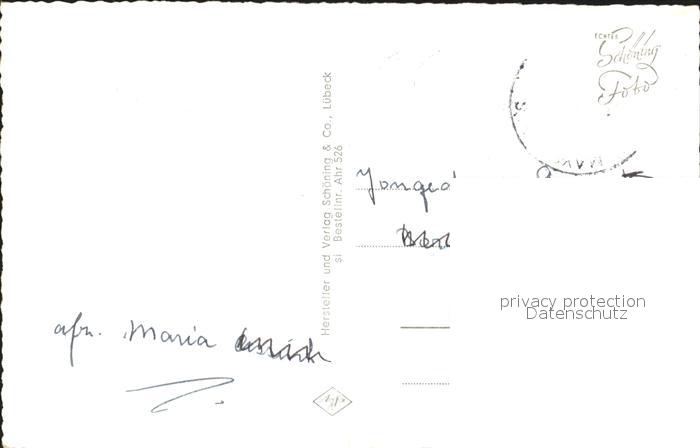 ECHTES
Schöning
Foto
Hersteller und Verlag Schöning & Co., Lübeck
si Bestellnr. Ahr 526
privacy protection
Datenschutz
afr. Maria
Agfa